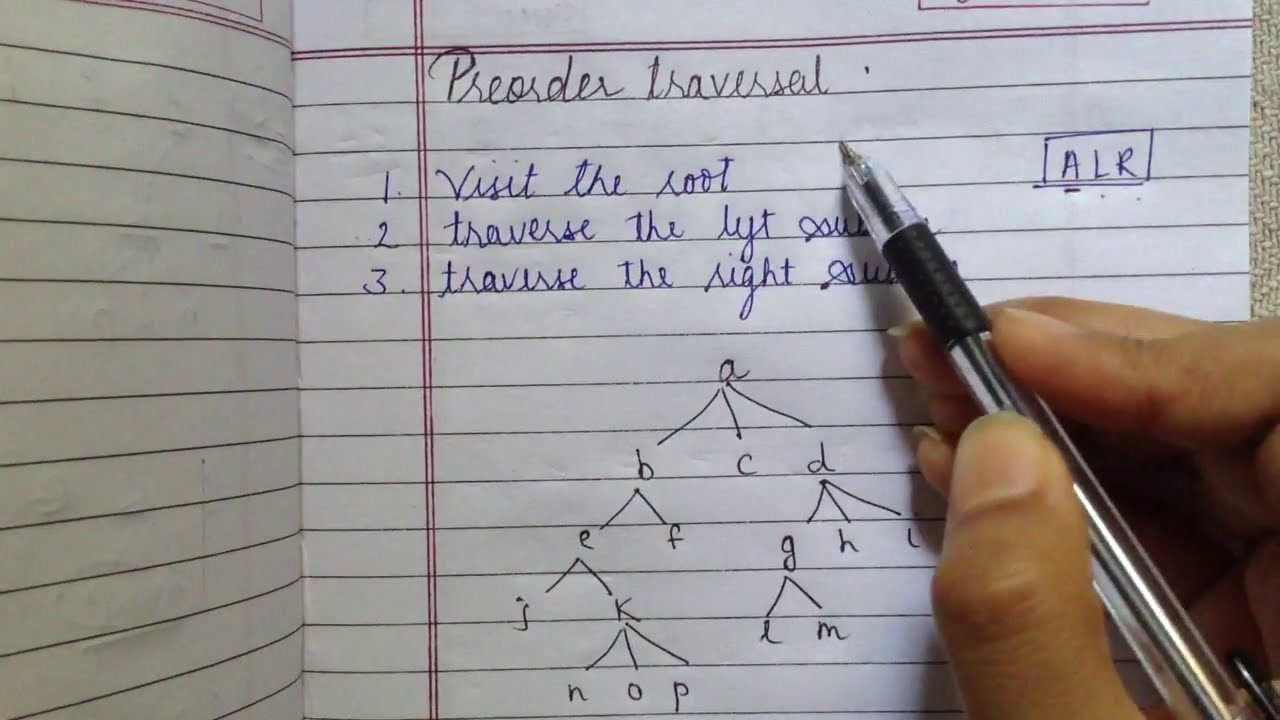 Preorder traversal .
1. Visit the root
ALR
2 traverse the left
3. traverse the right
a
b c d
e f g h i
j K l m
n o p